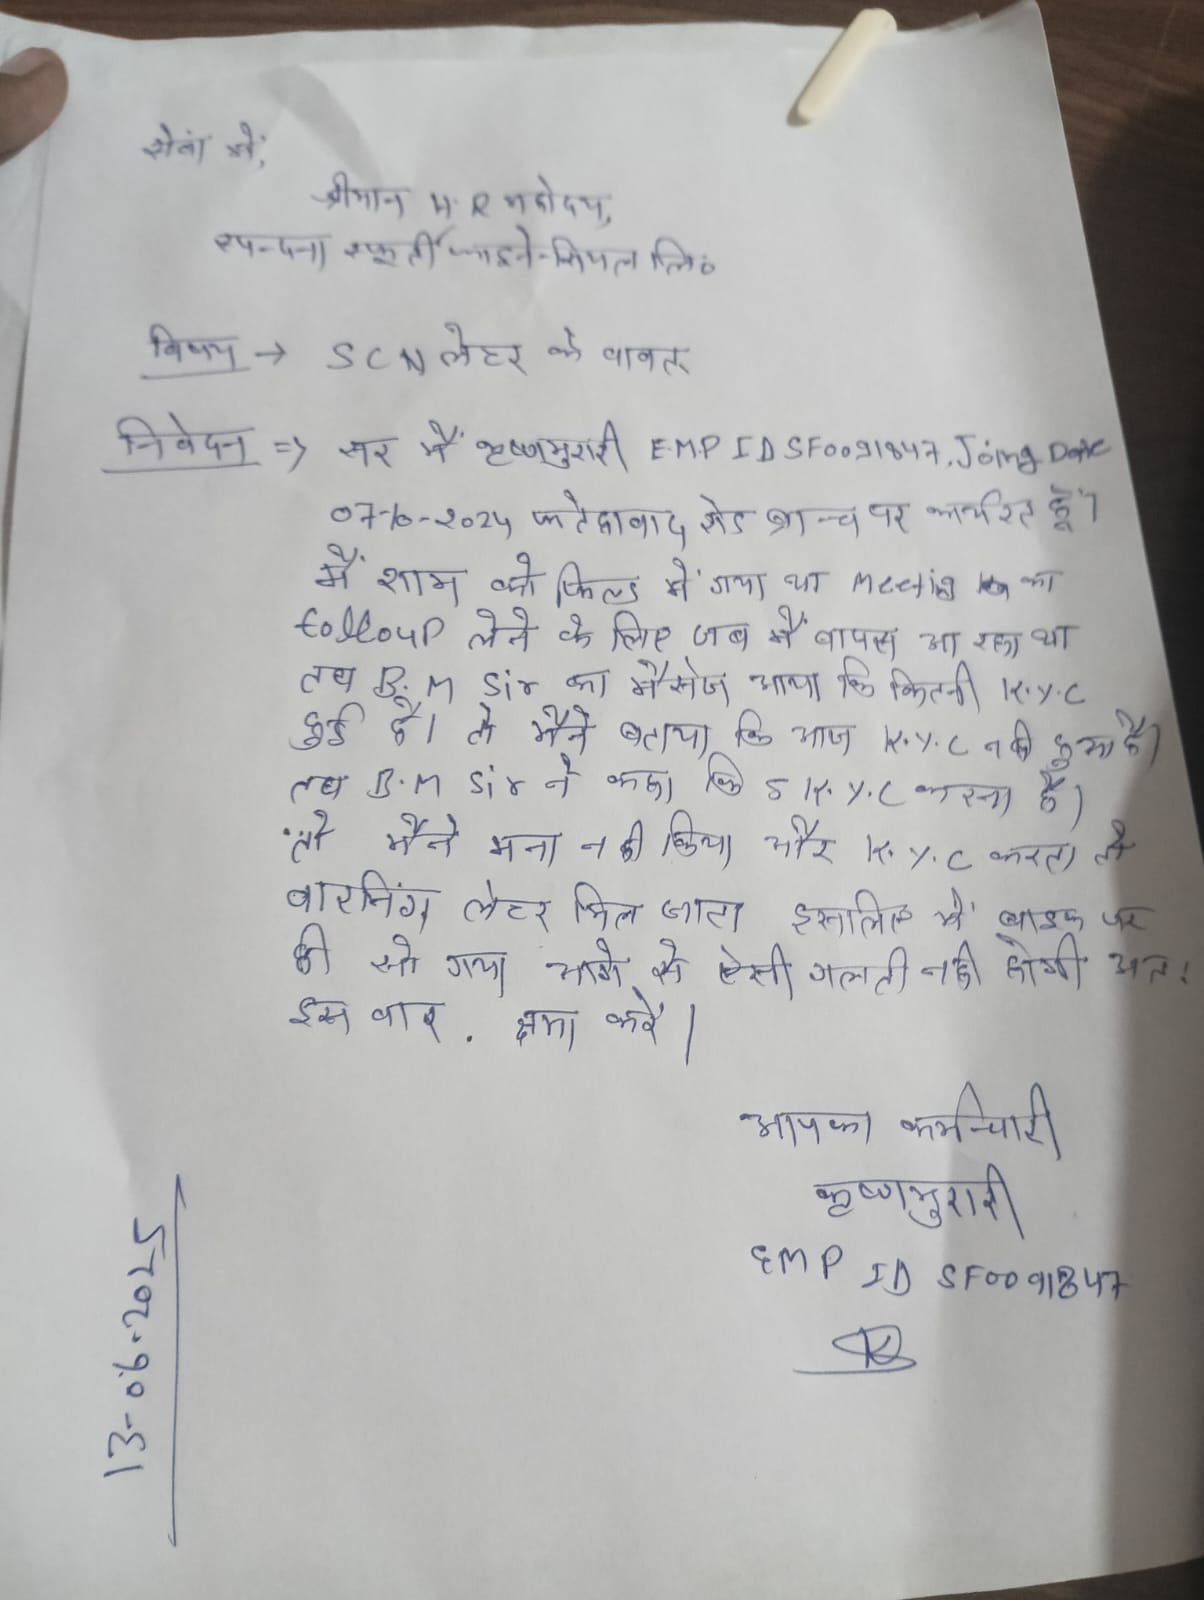 सेवा में,
श्रीमान H.R महोदय,
स्पन्दना स्फूर्ती फाइनेन्सियल लि०
विषय → SCN लेटर के वावत
निवेदन => सर मैं कृष्णमुरारी EMP ID SF0091847, Joing Date
07-10-2024 फतेहावाद रोड ब्रान्च पर कार्यरत हूँ।
मैं शाम को फिल्ड में गया था Meeting का
followup लेने के लिए जब मैं वापस आ रहा था
तब B.M Sir का मैसेज आया कि कितनी K.Y.C
हुई है। तो मैने बताया कि आज K.Y.C नही हुआ है।
तब B.M Sir ने कहा कि 5 K.Y.C करना है।
तो मैने मना नही किया और K.Y.C करता तो
वारनिंग लेटर मिल जाता इसलिए में बाइक पर
ही सो गया आगे से ऐसी गलती नही होगी अतः
इस वार . क्षमा करें।
आपका कर्मचारी
कृष्णमुरारी
EMP ID SF0091847
13-06-2025